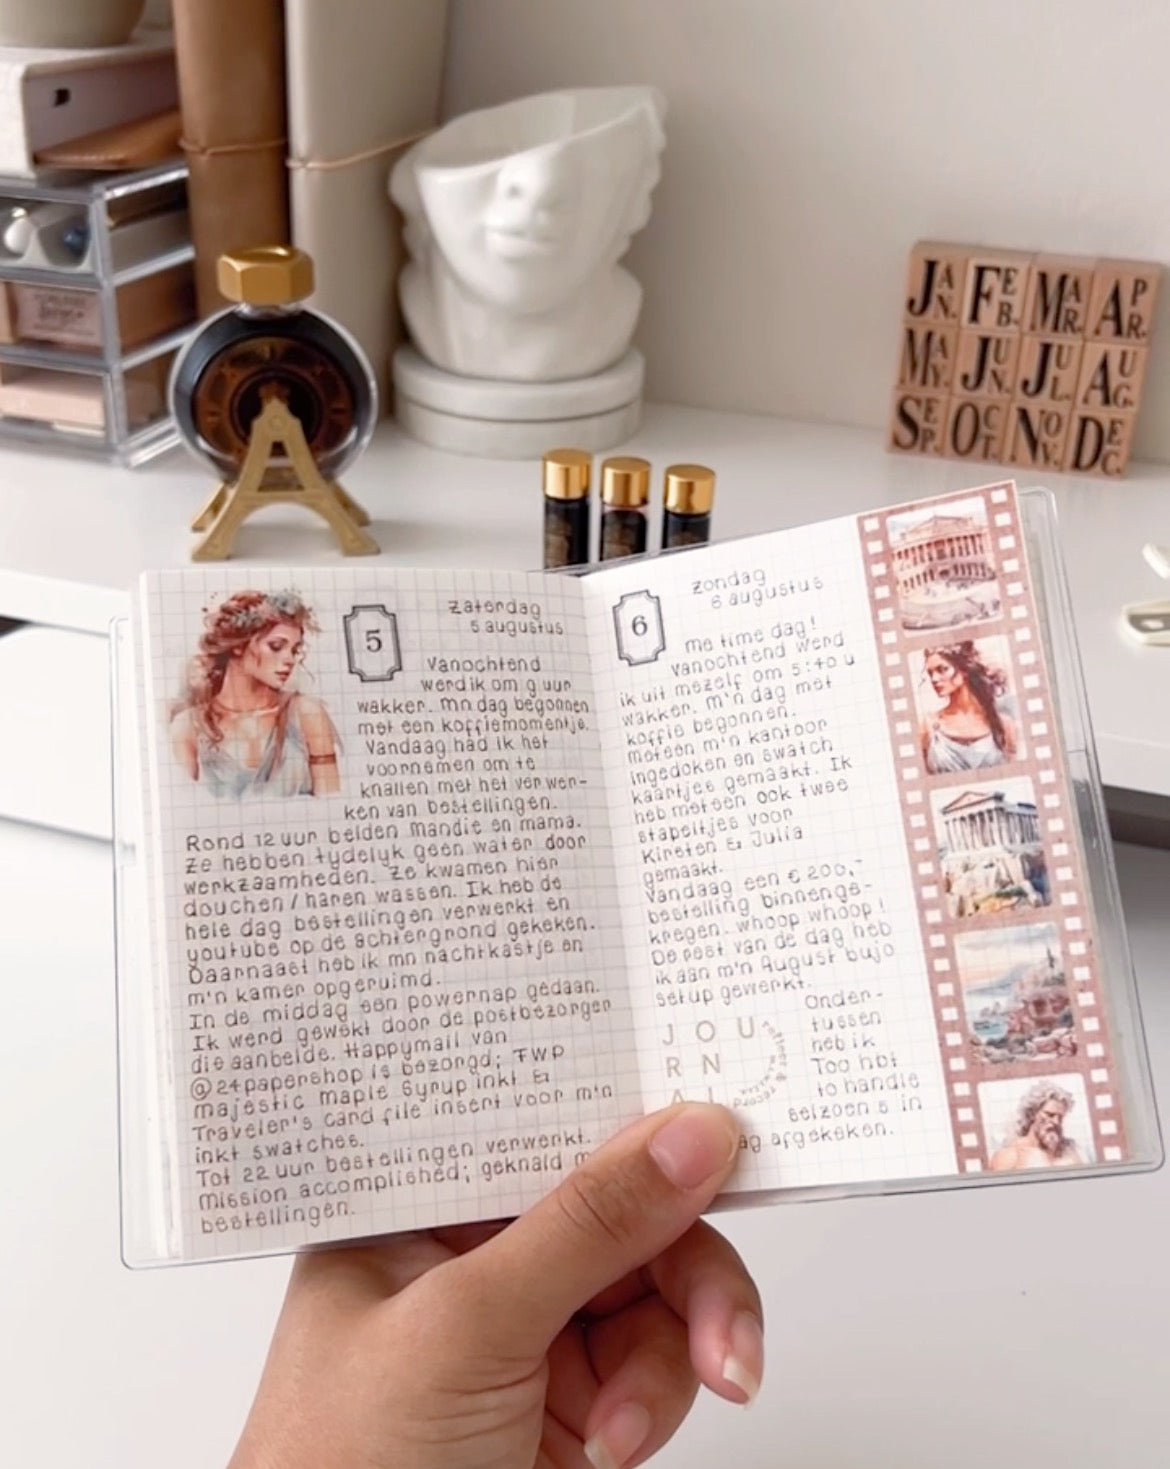 JAN.
FEB.
MAR.
APR.
MAY.
JUN.
JUL.
AUG.
SEP.
OCT.
NOV.
DEC.
5
zaterdag
5 augustus
Vanochtend
werd ik om 9 uur
wakker. mn dag begonnen
met een koffiemomentje.
Vandaag had ik het
voornemen om te
knallen met het verwer-
ken van bestellingen.
Rond 12 uur belden Mandie en mama.
Ze hebben tydelyk geen water door
werkzaamheden. Ze kwamen hier
douchen / haren wassen. Ik heb de
hele dag bestellingen verwerkt en
youtube op de achtergrond gekeken.
Daarnaast heb ik mn nachtkastje en
m'n kamer opgeruimd.
In de middag een powernap gedaan.
Ik werd gewekt door de postbezorger
die aanbelde. Happymail van
@24papershop is bezorgd; TWP
majestic maple Syrup inkt &
Traveler's Card file insert voor m'n
inkt swatches.
Tot 22 uur bestellingen verwerkt.
mission accomplished; geknald
bestellingen.
6
zondag
6 augustus
me time dag!
Vanochtend werd
ik uit mezelf om 5:40 u
wakker. m'n dag met
koffie begonnen.
meteen m'n kantoor
ingedoken en swatch
kaartjes gemaakt. Ik
heb meteen ook twee
stapeltjes voor
Kirsten & Julia
gemaakt.
Vandaag een € 200,-
bestelling binnenge-
kregen. whoop whoop!
De rest van de dag heb
ik aan m'n August bujo
setup gewerkt.
Onder-
tussen
heb ik
Too hot
to handle
seizoen 5 in
afgekeken.
J O U
R N
A L
record